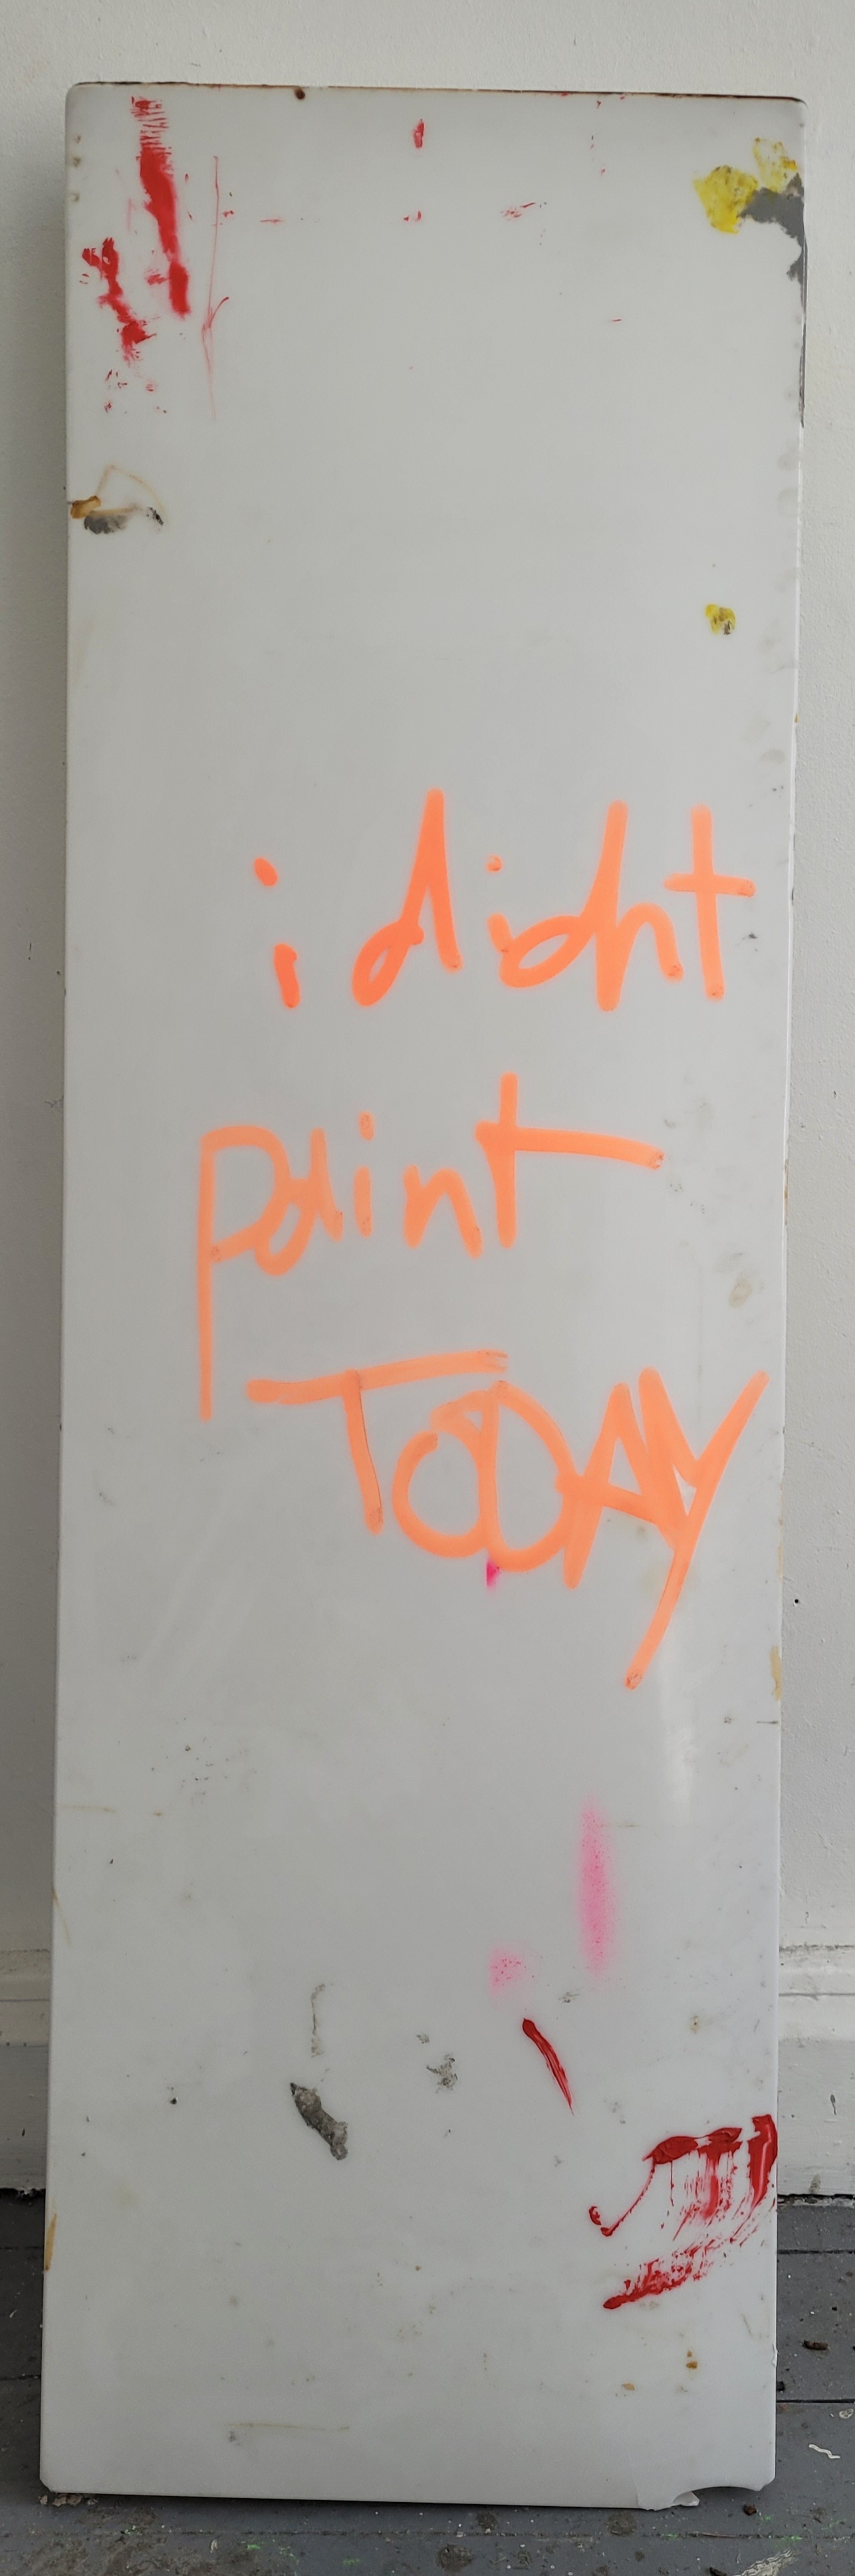 i didnt
paint
TODAY